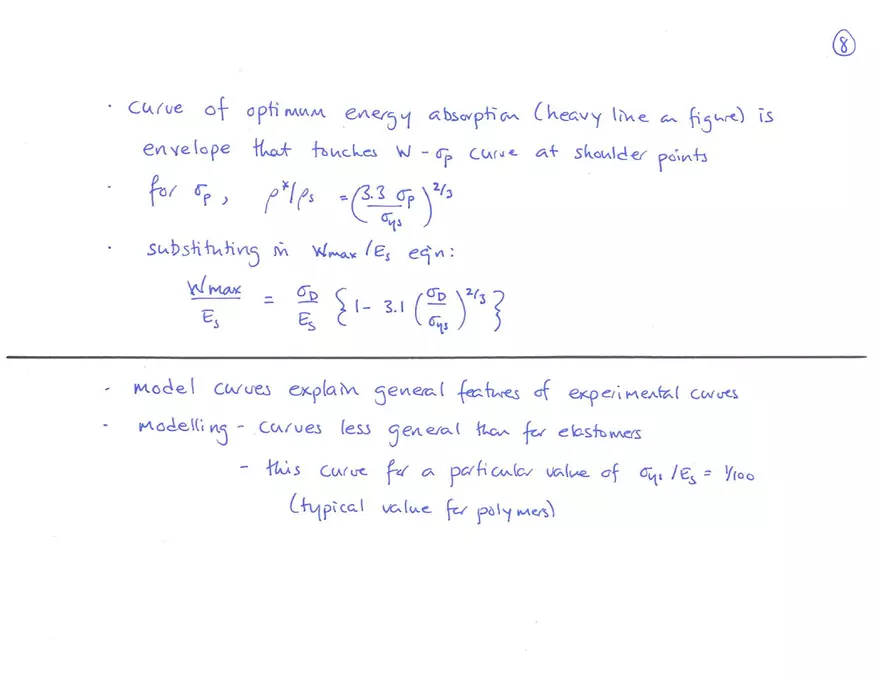 ⑧
· curve of optimum energy absorption (heavy line on figure) is
envelope that touches W - σp curve at shoulder points
· for σp, ρ*/ρs = (3.3 σp / σys)^2/3
· substituting in Wmax/Es eqn:
Wmax / Es = σD / Es {1 - 3.1 (σD / σys)^2/3}
- model curves explain general features of experimental curves
- modelling - curves less general than for elastomers
- this curve for a particular value of σys/Es = 1/100
(typical value for polymers)